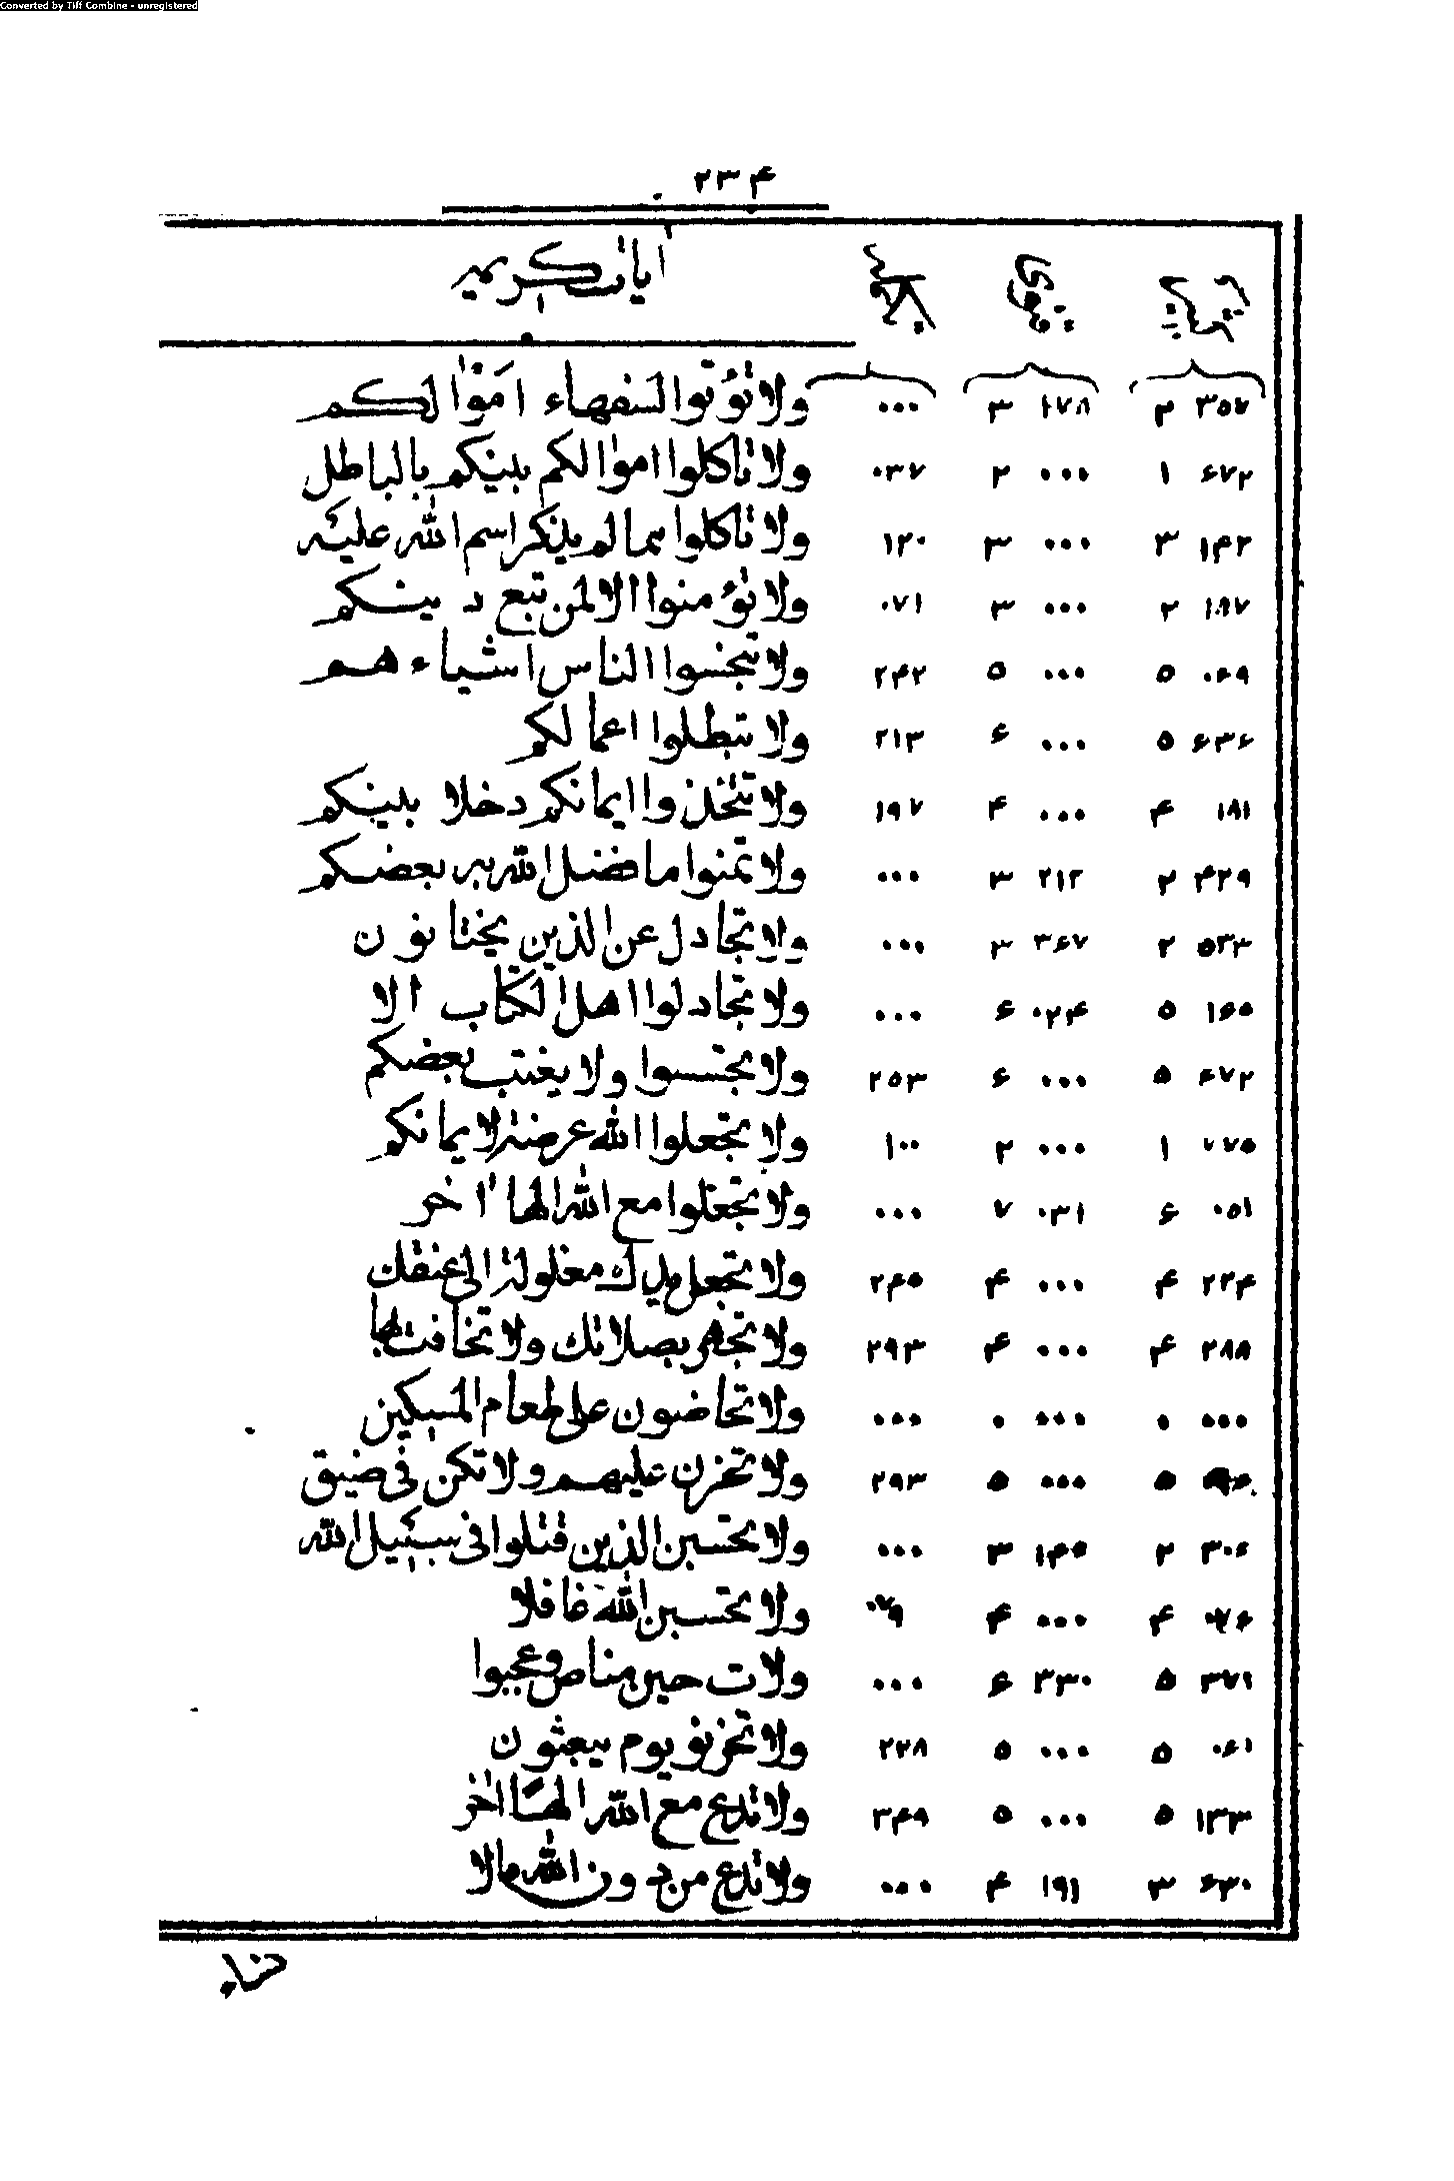 Converted by Tiff Combine - unregistered
٢٣۴
آيات كريمه
٣٥٧ ٢ ١٧٨ ٣ ٠٠٠ ولا تؤتوا السفهاء اموالكم
۶٧٢ ١ ٠٠٠ ٢ ٠٣٧ ولا تاكلوا اموالكم بينكم بالباطل
١۴٢ ٣ ٠٠٠ ٣ ١٢٠ ولا تاكلوا مما لم يذكر اسم الله عليه
١٨٧ ٢ ٠٠٠ ٣ ٠٧١ ولا تؤمنوا الا لمن تبع دينكم
٠۶٩ ٥ ٠٠٠ ٥ ٢۴٢ ولا تبخسوا الناس اشياءهم
۶٣۶ ٥ ٠٠٠ ۶ ٢١٣ ولا تبطلوا اعمالكم
١٨١ ۴ ٠٠٠ ۴ ١٩٧ ولا تتخذوا ايمانكم دخلا بينكم
۴٢٩ ٢ ٢١٢ ٣ ٠٠٠ ولا تتمنوا ما فضل الله به بعضكم
٥٣٣ ٢ ٣۶٧ ٣ ٠٠٠ ولا تجادل عن الذين يختانون
١۶٥ ٥ ٠٢۴ ۶ ٠٠٠ ولا تجادلوا اهل الكتاب الا
۶٧٢ ٥ ٠٠٠ ۶ ٢٥٣ ولا تجسسوا ولا يغتب بعضكم
٧٧٥ ١ ٠٠٠ ٢ ١٠٠ ولا تجعلوا الله عرضة لايمانكم
٠٥١ ۶ ٠٣١ ٧ ٠٠٠ ولا تجعلوا مع الله الها اخر
٢٢۴ ۴ ٠٠٠ ۴ ٢۴٥ ولا تجعل يدك مغلولة الى عنقك
٢٨٨ ۴ ٠٠٠ ۴ ٢٩٣ ولا تجهر بصلاتك ولا تخافت بها
٠٠٠ ٠ ٠٠٠ ٠ ٠٠٠ ولا تحاضون على طعام المسكين
٥ ٠٠٠ ٥ ٢٩٣ ولا تحزن عليهم ولا تكن في ضيق
٣٠۶ ٢ ١۴٥ ٣ ٠٠٠ ولا تحسبن الذين قتلوا في سبيل الله
٠٧۶ ۴ ٠٠٠ ۴ ٠٧٩ ولا تحسبن الله غافلا
٣٧١ ٥ ٣٣٠ ۶ ٠٠٠ ولات حين مناص وعجبوا
٠۶١ ٥ ٠٠٠ ٥ ٢٢٨ ولا تخزنى يوم يبعثون
١٣٣ ٥ ٠٠٠ ٥ ٣۴٩ ولا تدع مع الله الها اخر
۶٣٠ ٣ ١٩١ ۴ ٠٠٠ ولا تدع من دون الله ما لا